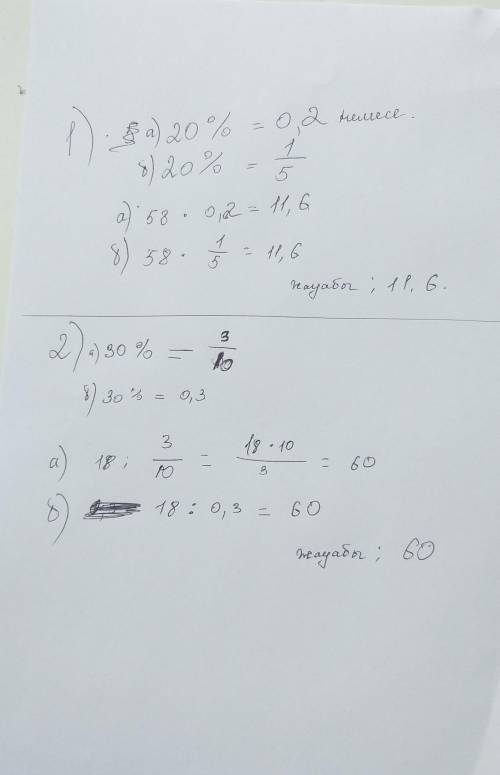 1) а) 20% = 0,2 немесе.
б) 20% = 1/5
а) 58 · 0,2 = 11,6
б) 58 · 1/5 = 11,6
жауабы ; 11,6.
2) а) 30% = 3/10
б) 30% = 0,3
а) 18 ; 3/10 = 18·10/3 = 60
б) 18 : 0,3 = 60
жауабы ; 60